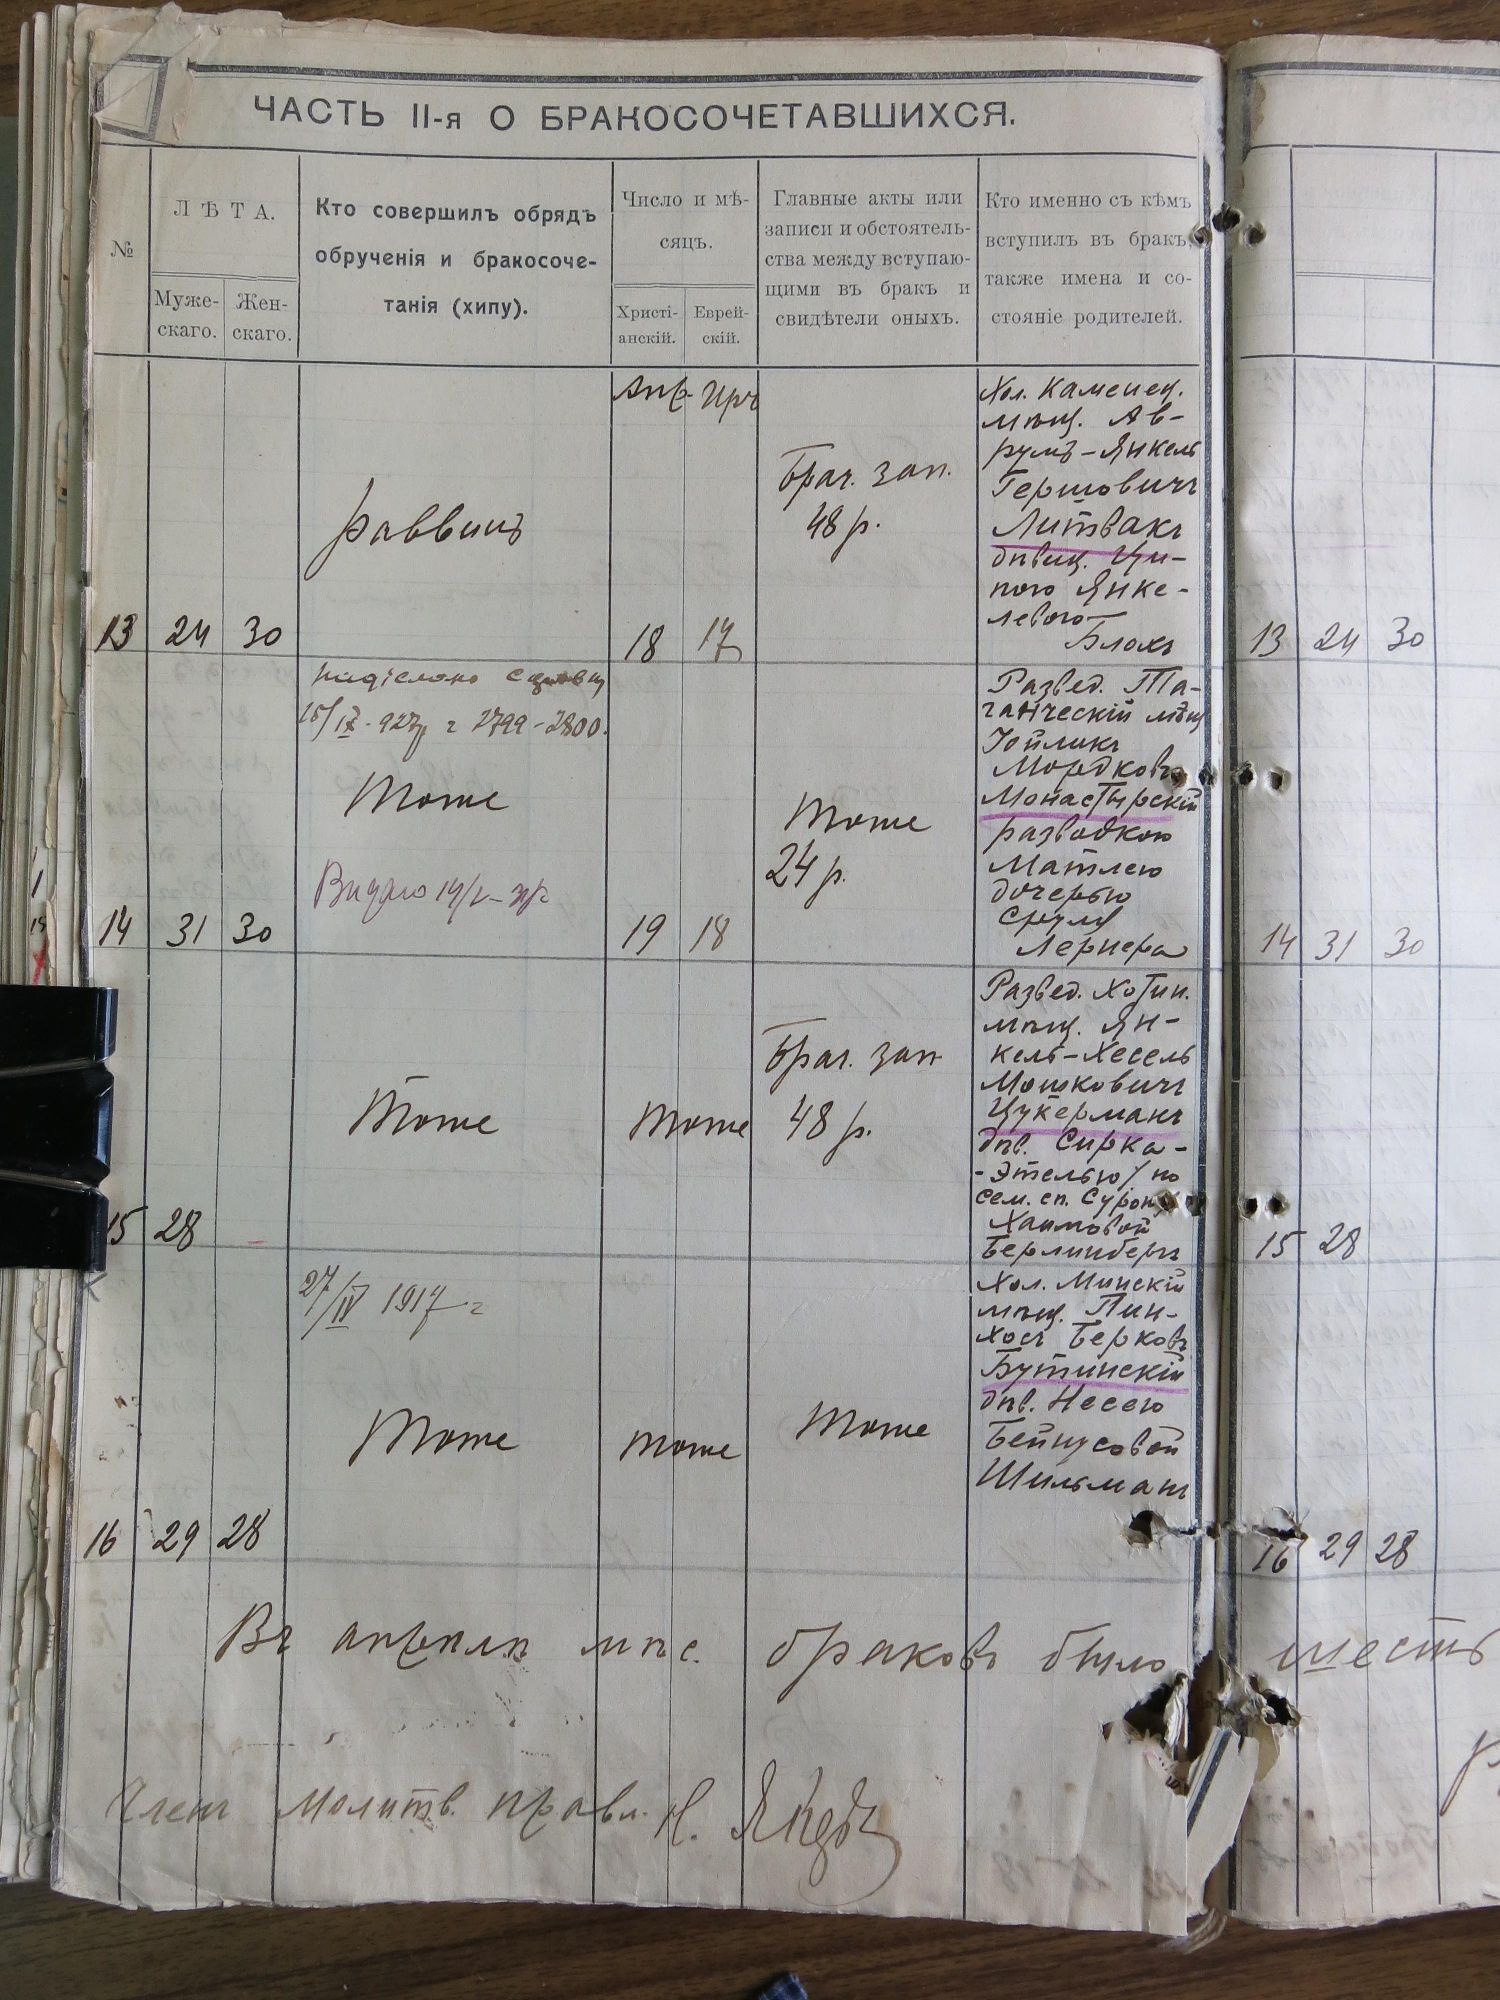 ЧАСТЬ II-я О БРАКОСОЧЕТАВШИХСЯ.
№
ЛѢТА.
Муже-
скаго.
Жен-
скаго.
Кто совершилъ обрядъ
обрученія и бракосоче-
танія (хипу).
Число и мѣ-
сяцъ.
Христі-
анскій.
Еврей-
скій.
Главные акты или
записи и обстоятель-
ства между вступаю-
щими въ бракъ и
свидѣтели оныхъ.
Кто именно съ кѣмъ
вступилъ въ бракъ,
также имена и со-
стояніе родителей.
13 24 30
Раввинъ
Апр. Иръ
18 17
Брач. зап.
48 р.
Хол. Каменец.
мѣщ. Ав-
румъ-Янкель
Гершовичъ
Литвакъ
дѣвиц. Ци-
пою Янке-
левою
Блохъ
13 24 30
14 31 30
15/IX - 927 г 2799-2800.
Тоже
Видано
19 18
Тоже
24 р.
Развед. Та-
ганческій мѣщ
Іойликъ
Мордковъ
Монастырскій
разводкою
Матлею
дочерью
Срула
Лернера
14 31 30
15 28
Тоже
Тоже
Брач. зап
48 р.
Развед. Хотин.
мѣщ. Ян-
кель-Хесель
Мошковичъ
Цукерманъ
дѣв. Сирка-
-Этелью/по
сем. сп. Сурою/
Хаимовой
Берлинбергъ
15 28
16 29 28
27/IV 1917 г
Тоже
тоже
Тоже
Хол. Минскій
мѣщ. Пин-
хосъ Берковъ
Бутинскій
дѣв. Несею
Бейнусовой
Шильманъ
16 29 28
Въ апрѣлѣ мѣс. браковъ было шесть
Членъ Молитв. правл.